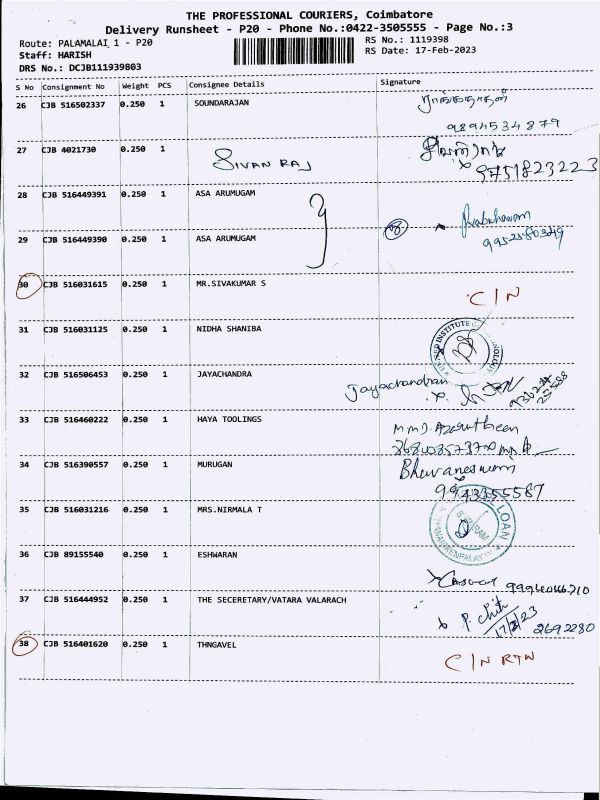 THE PROFESSIONAL COURIERS, Coimbatore
Delivery Runsheet - P20 - Phone No.:0422-3505555 - Page No.:3
Route: PALAMALAI_1 - P20
RS No.: 1119398
Staff: HARISH
RS Date: 17-Feb-2023
DRS No.: DCJB111939803
S No Consignment No Weight PCS Consignee Details Signature
26 CJB 516502337 0.250 1 SOUNDARAJAN
9894534879
27 CJB 4021730 0.250 1 SIVAN RAJ
9751823223
28 CJB 516449391 0.250 1 ASA ARUMUGAM
29 CJB 516449390 0.250 1 ASA ARUMUGAM
30 CJB 516031615 0.250 1 MR.SIVAKUMAR S
C/N
31 CJB 516031125 0.250 1 NIDHA SHANIBA
32 CJB 516506453 0.250 1 JAYACHANDRA
Jayachandran
33 CJB 516460222 0.250 1 HAYA TOOLINGS
34 CJB 516390557 0.250 1 MURUGAN
Bhuvaneswari
9943355587
35 CJB 516031216 0.250 1 MRS.NIRMALA T
LOAN
36 CJB 89155540 0.250 1 ESHWARAN
37 CJB 516444952 0.250 1 THE SECERETARY/VATARA VALARACH
17/2/23
2692280
38 CJB 516401620 0.250 1 THNGAVEL
C/N RTN